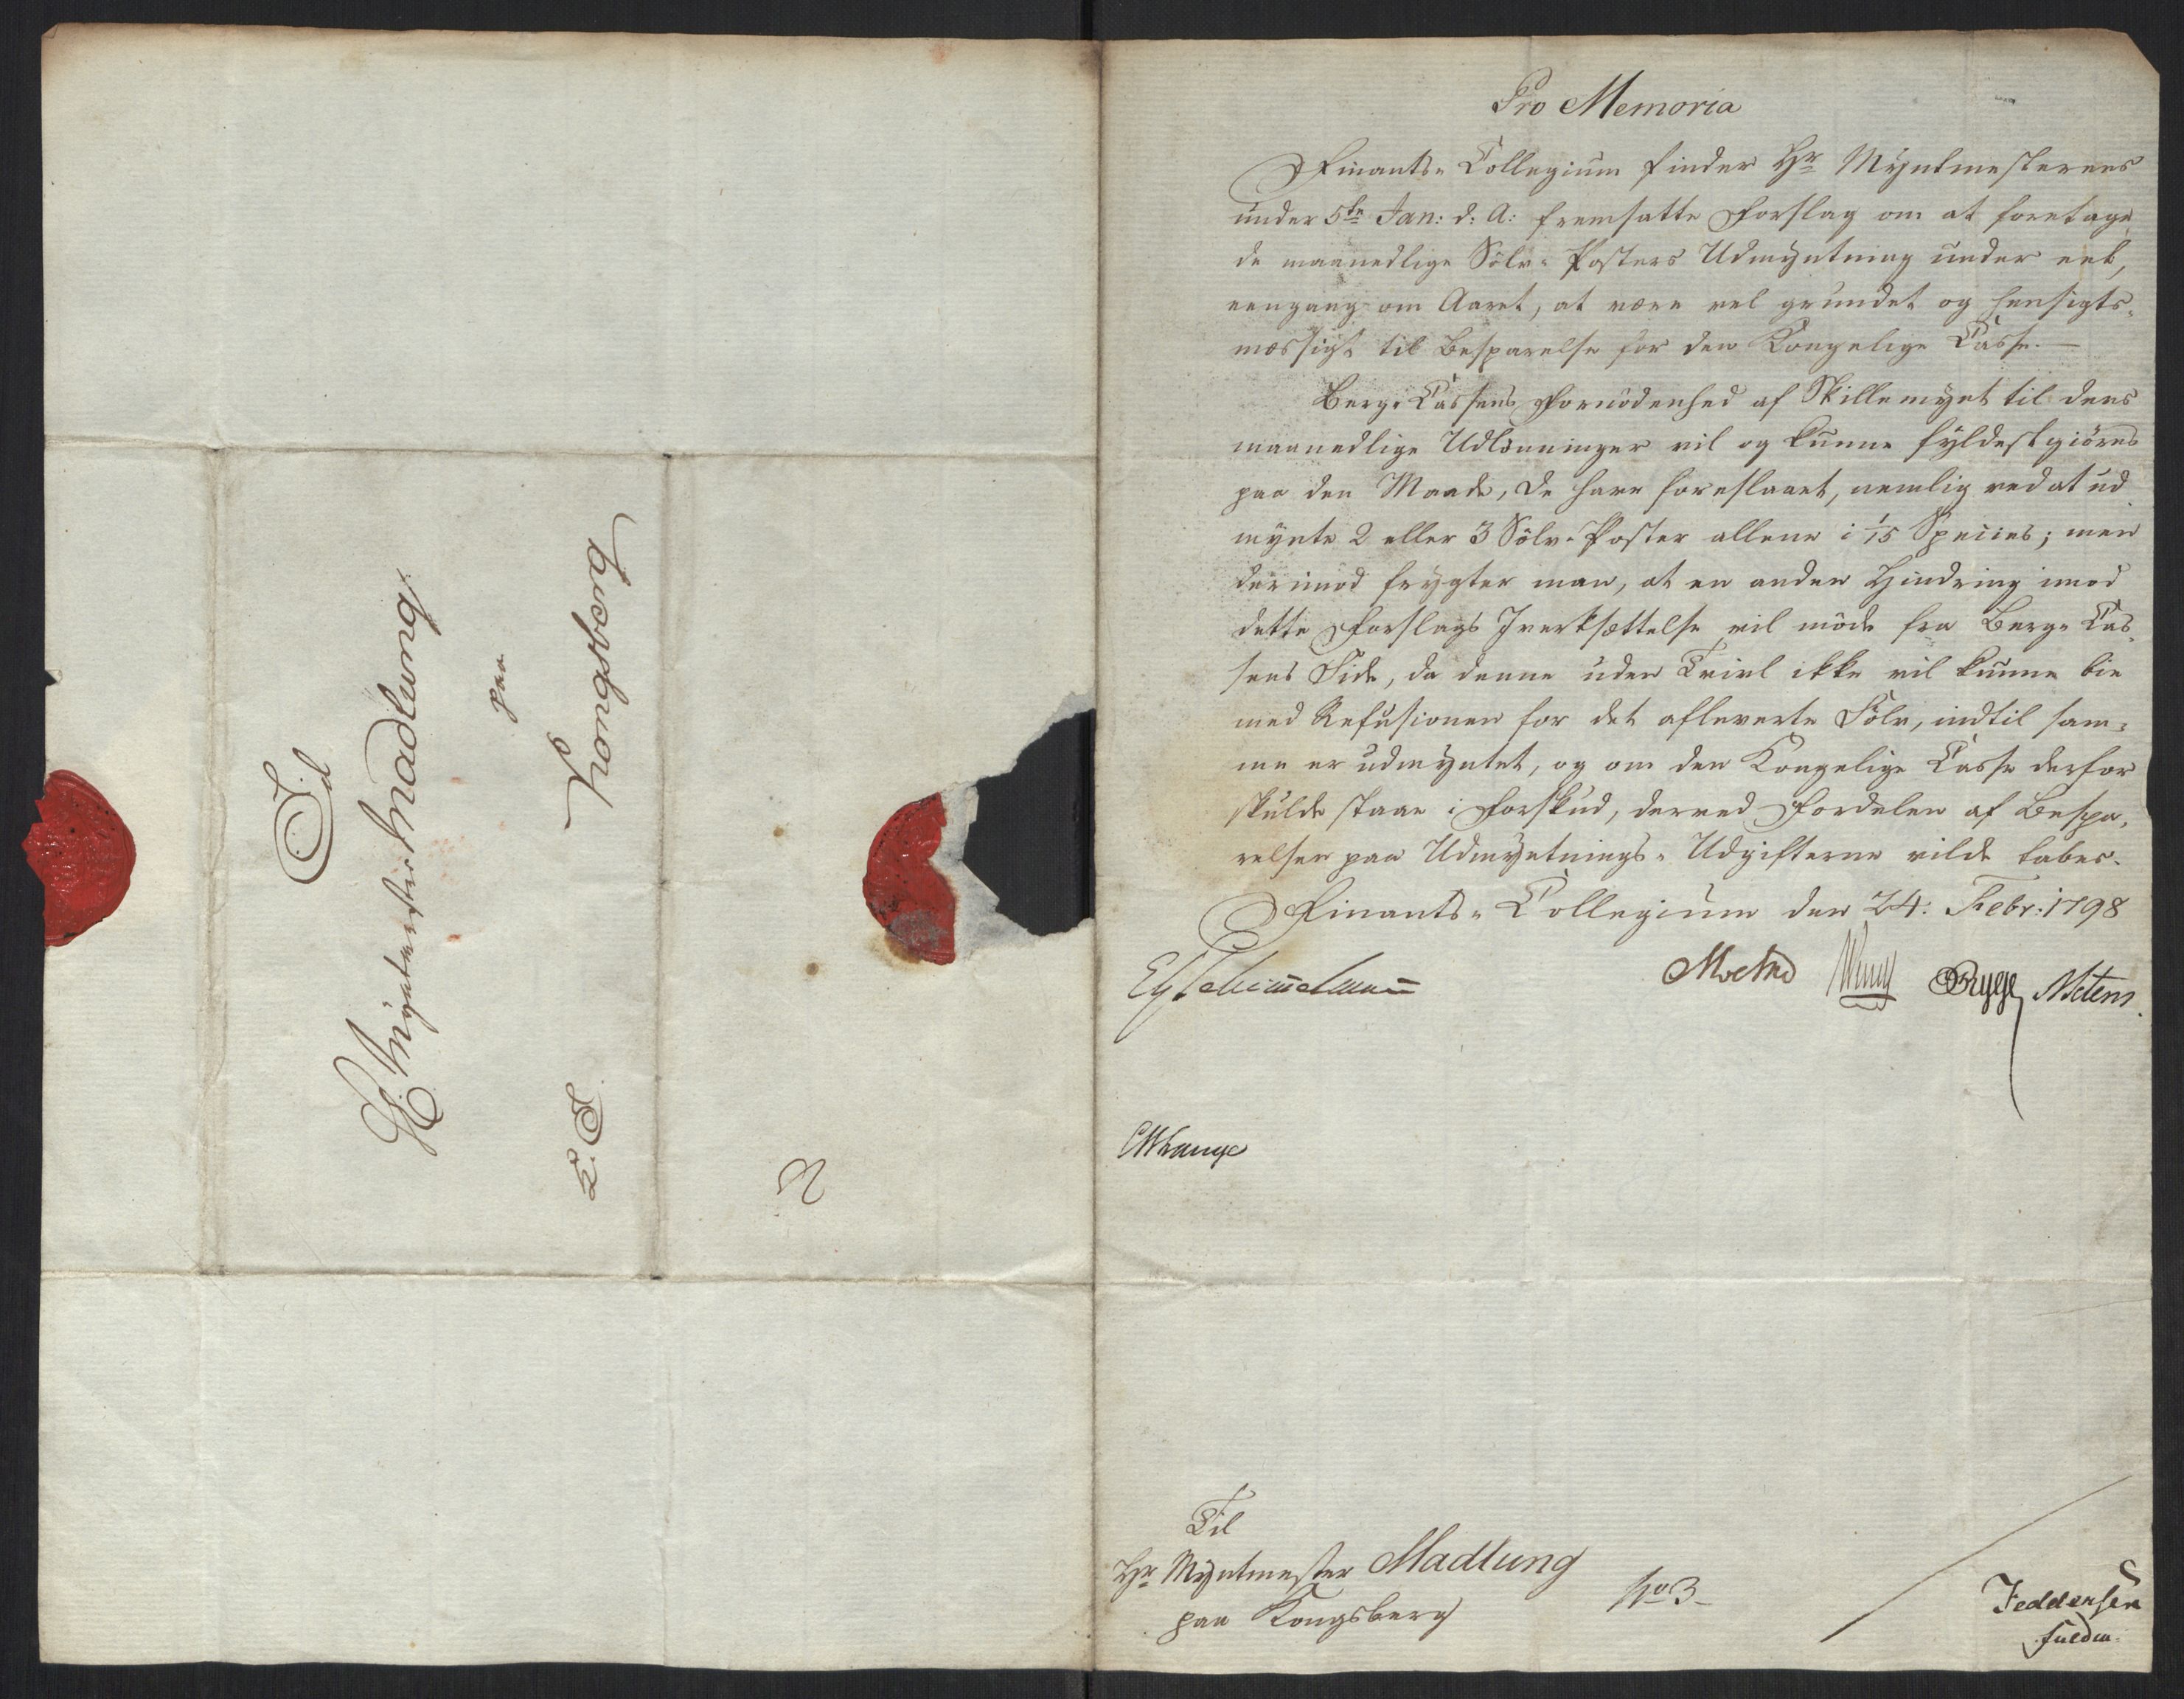 Til
Hr Myntmester Madlung
paa
Kongsberg
K. T.
Pro Memoria
Finants-Collegium finder Hr Myntmesterens
under 5te Jan: d: A: fremsatte Forslag om at foretage
de maanedlige Sölv-Posters Udmyntning under eet,
eengang om Aaret, at være vel grundet og hensigts-
mæssigt til Besparelse for den Kongelige Casse. —
Berg-Cassens Fornödenhed af Skillemynt til dens
maanedlige Udlönninger vil og kunne fyldestgiöres
paa den Maade, De have foreslaaet, nemlig ved at ud-
mynte 2 eller 3 Sölv-Poster allene i 1/15 Species; men
derimod frygter man, at en anden Hindring imod
dette Forslags Iverksættelse vil möde fra Berg-Cas-
sens Side, da denne uden Tvivl ikke vil kunne bie
med Refusionen for det afleverte Sölv, indtil sam-
me er udmyntet, og om den Kongelige Casse derfor
skulde staae i Forskud, derved Fordelen af Bespa-
relsen paa Udmyntnings-Udgifterne vilde tabes.
Finants-Collegium den 24. Febr: 1798
ESchimelmann
Bygge
CWLange
Til
Hr Myntmester Madlung
paa Kongsberg
No 3
Feddersen
fuldm: